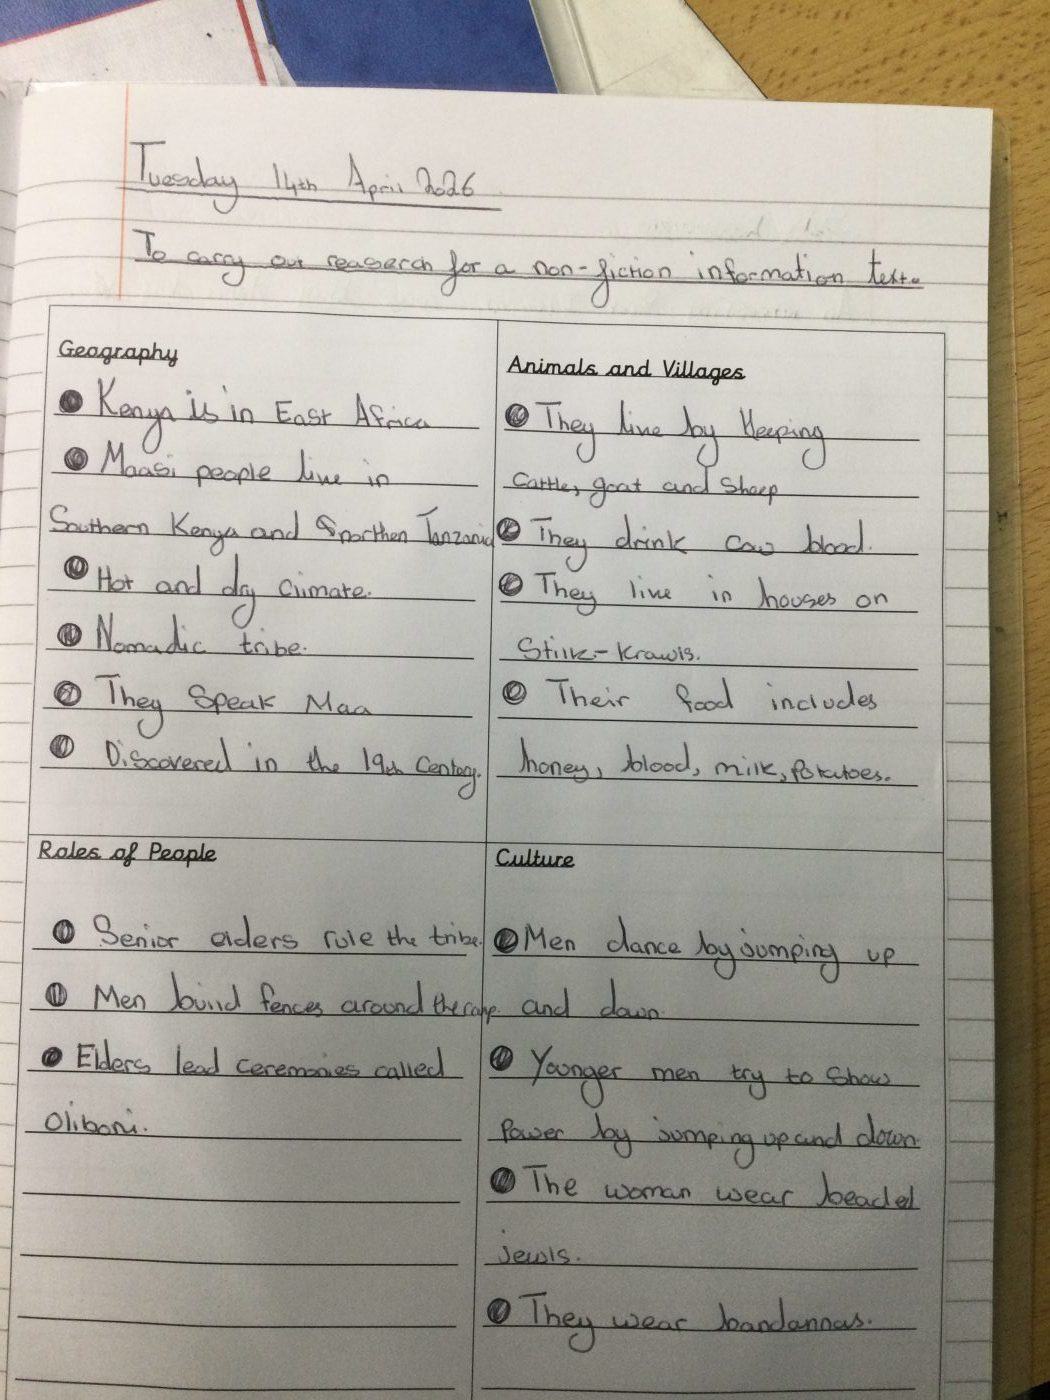 Tuesday 14th April 2026
To carry our reaserch for a non-fiction information text.
Geography
Kenya is in East Africa
Maasi people live in
Southern Kenya and northen Tanzania
Hot and dry climate.
Nomadic tribe.
They Speak Maa
Discovered in the 19th Century.
Animals and Villages
They live by Keeping
Cattle, goat and Sheep
They drink cow blood.
They live in houses on
Stilk-Krawls.
Their food includes
honey, blood, milk, Potatoes.
Roles of People
Senior elders rule the tribe.
Men build fences around the camp.
Elders lead ceremonies called
Oliboni.
Culture
Men dance by jumping up
and down
Younger men try to Show
Power by jumping up and down
The woman wear beaded
jewls.
They wear bandannas.